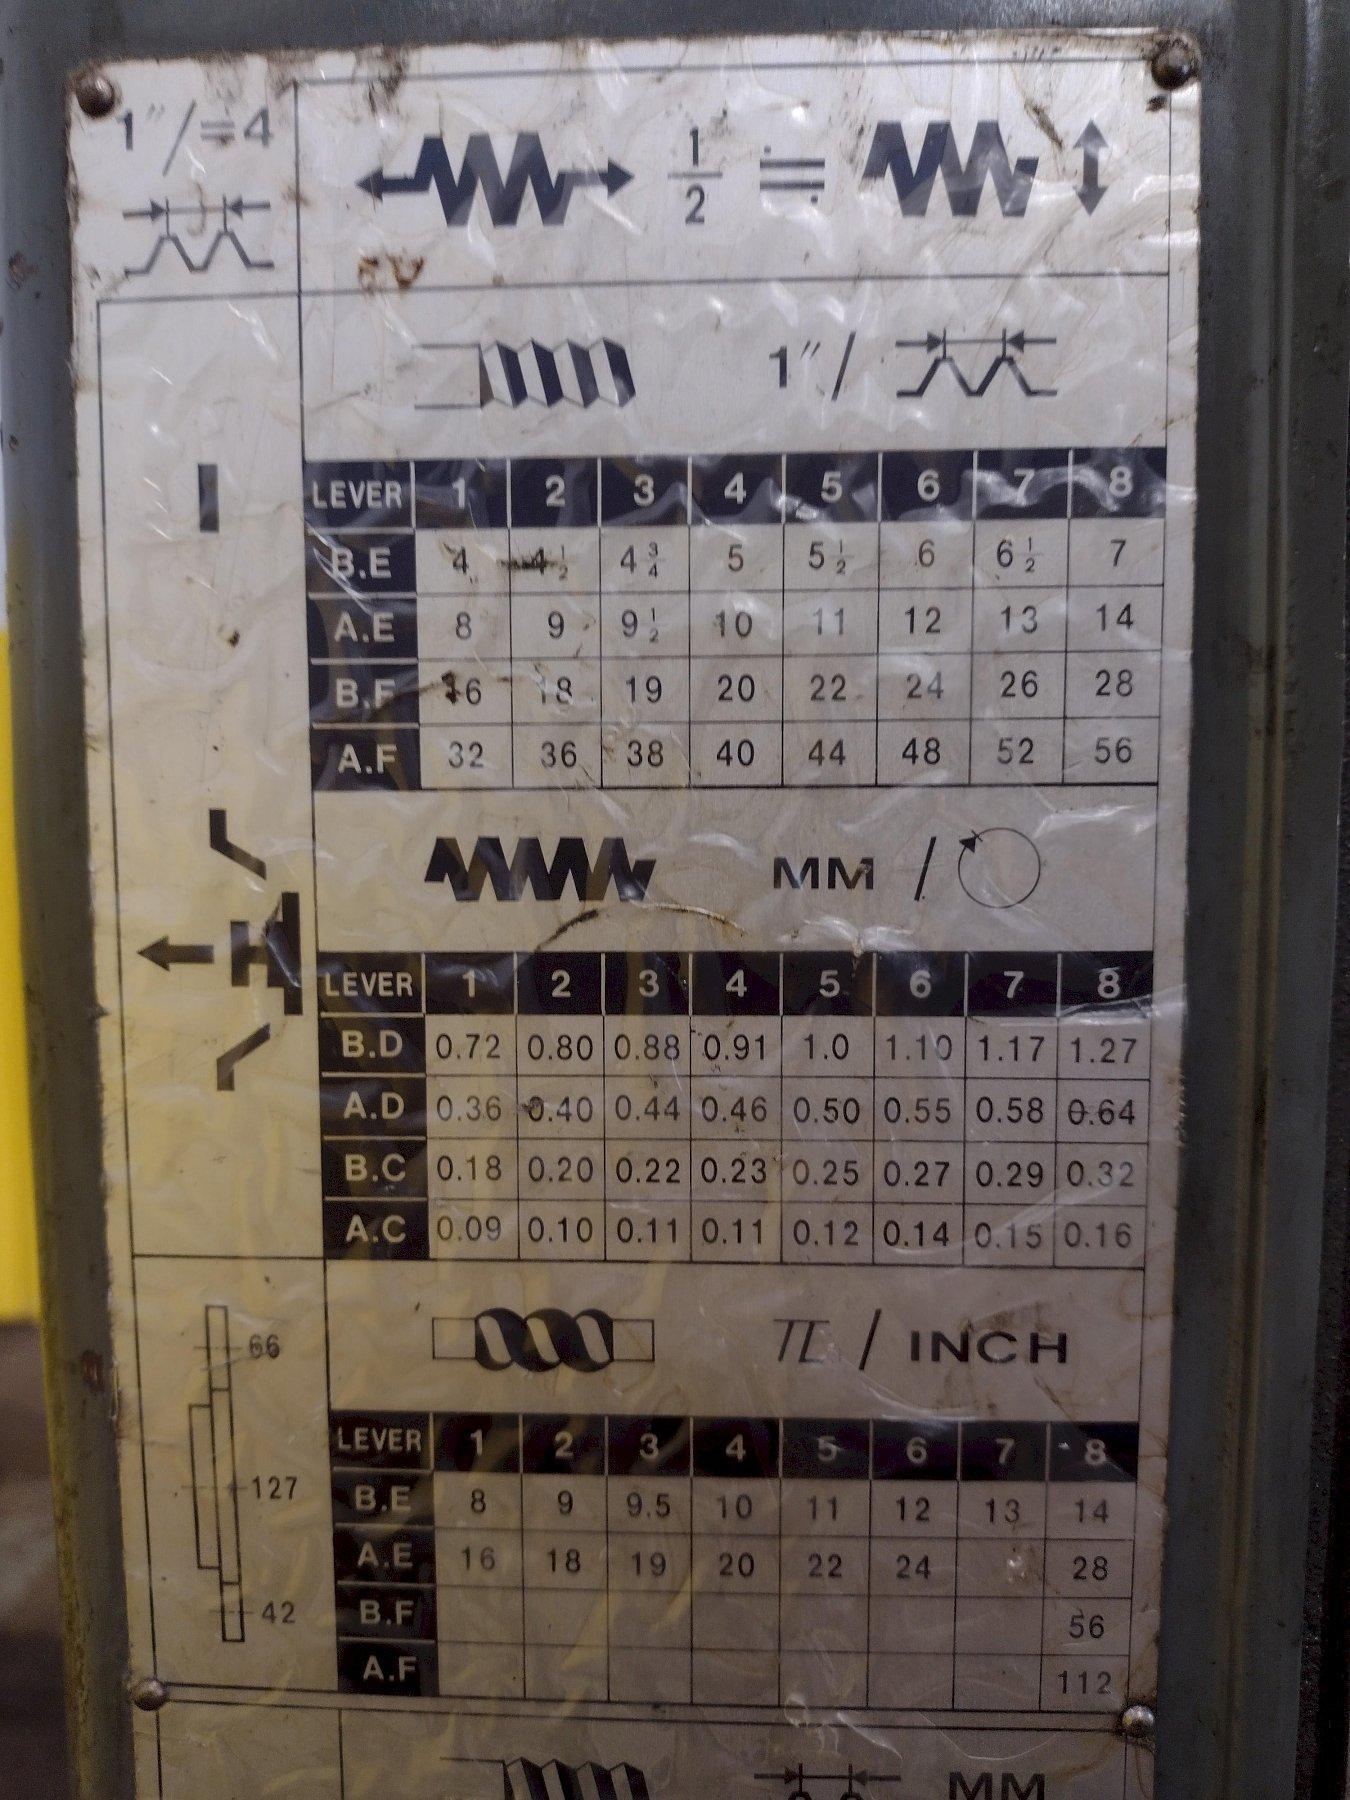 1″/≒4
1/2 ≒
1″/
LEVER 1 2 3 4 5 6 7 8
B.E 4 4 1/2 4 3/4 5 5 1/2 6 6 1/2 7
A.E 8 9 9 1/2 10 11 12 13 14
B.F 16 18 19 20 22 24 26 28
A.F 32 36 38 40 44 48 52 56
MM /
LEVER 1 2 3 4 5 6 7 8
B.D 0.72 0.80 0.88 0.91 1.0 1.10 1.17 1.27
A.D 0.36 0.40 0.44 0.46 0.50 0.55 0.58 0.64
B.C 0.18 0.20 0.22 0.23 0.25 0.27 0.29 0.32
A.C 0.09 0.10 0.11 0.11 0.12 0.14 0.15 0.16
66
127
42
π / INCH
LEVER 1 2 3 4 5 6 7 8
B.E 8 9 9.5 10 11 12 13 14
A.E 16 18 19 20 22 24 28
B.F 56
A.F 112
MM